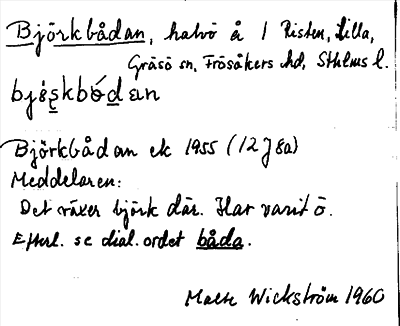 Björkbådan, halvö å 1 Risten, Lilla,
Gräsö sn, Frösåkers hd, Sthlms l.
bjö́rkbódan
Björkbådan ek 1955 (12J 8a)
Meddelaren:
Det växer björk där. Har varit ö.
Efterl. se dial. ordet båda.
Wickström 1960